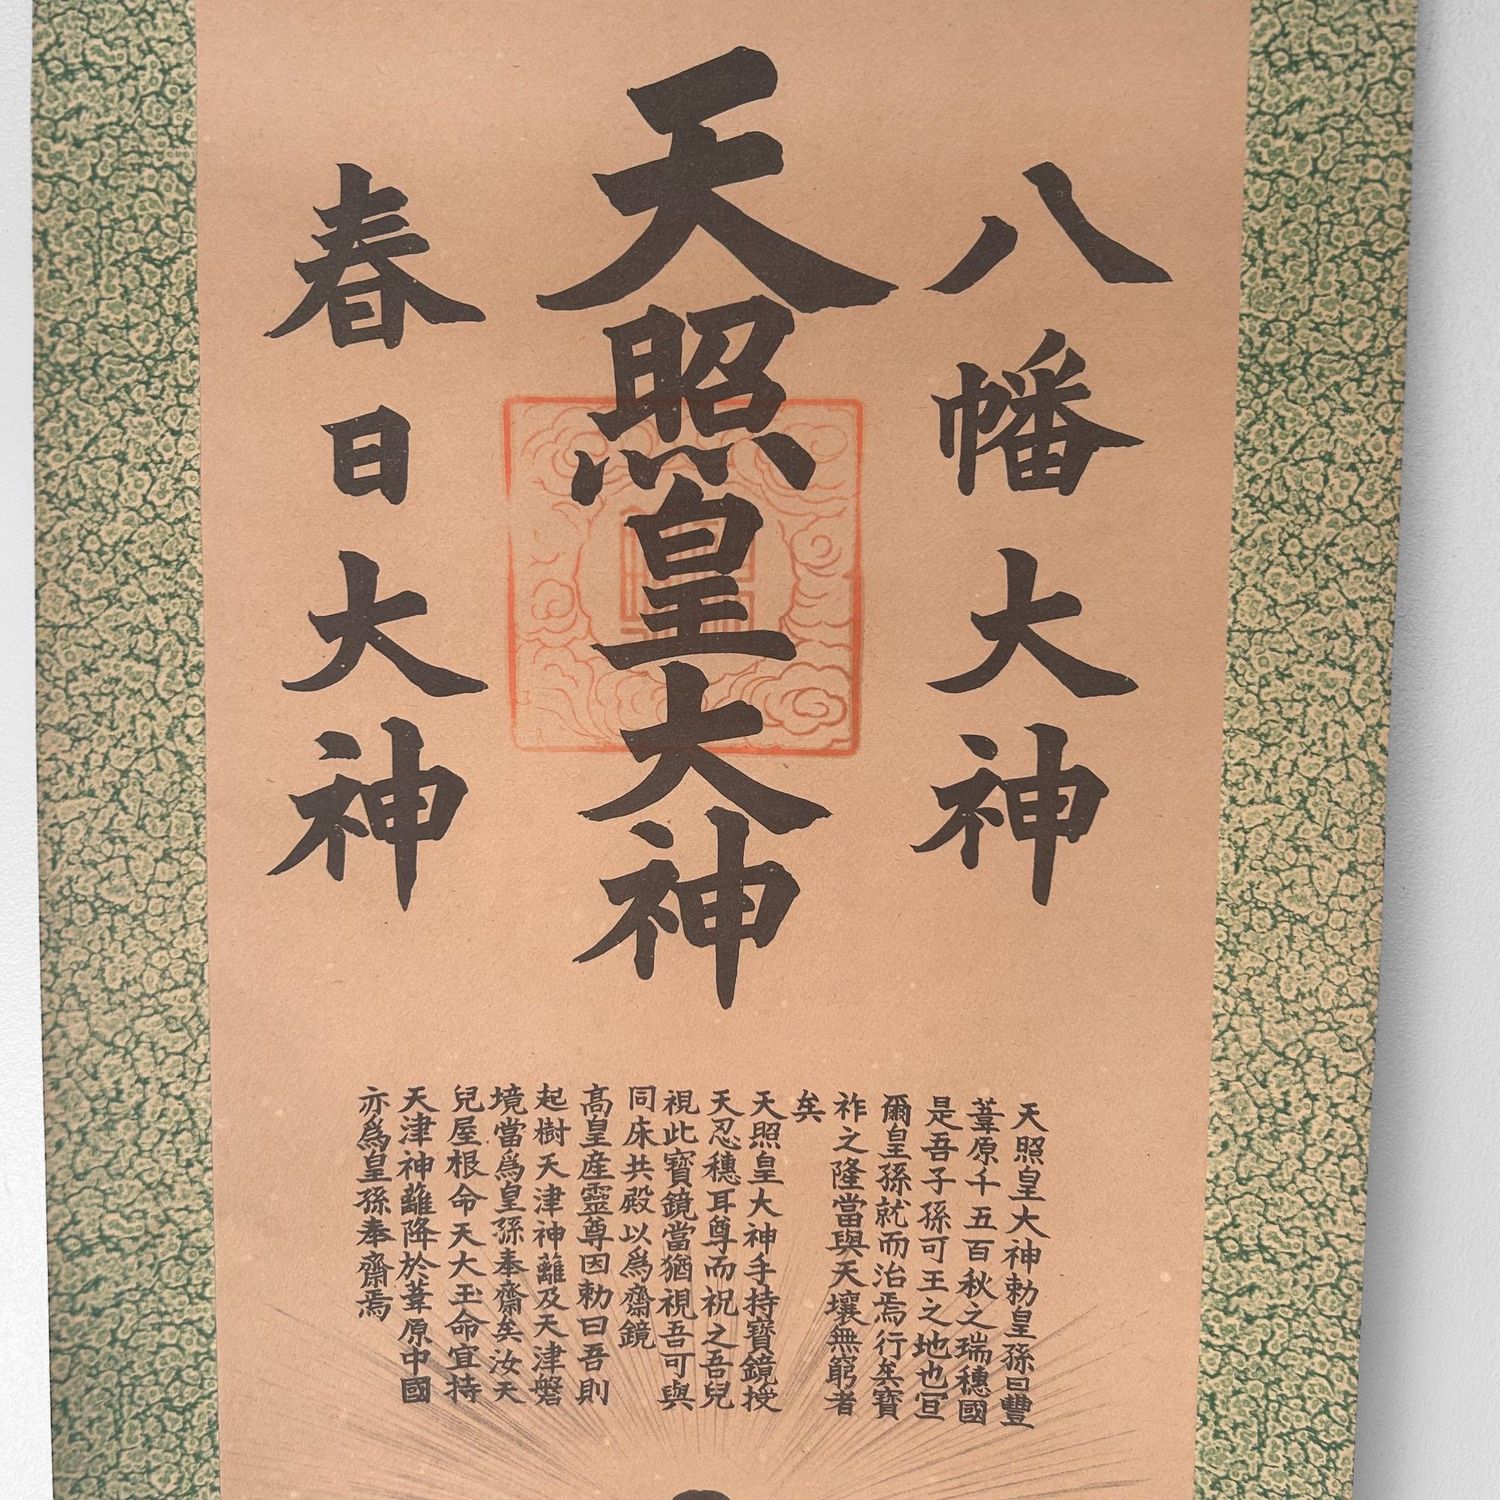 八幡大神
天照皇大神
春日大神
天照皇大神勅皇孫曰豐
葦原千五百秋之瑞穗國
是吾子孫可王之地也宜
爾皇孫就而治焉行矣寶
祚之隆當與天壤無窮者
矣
天照皇大神手持寶鏡授
天忍穗耳尊而祝之吾兒
視此寶鏡當猶視吾可與
同床共殿以爲齋鏡
高皇産靈尊因勅曰吾則
起樹天津神蘺及天津磐
境當爲皇孫奉齋矣汝天
兒屋根命天大玉命宜持
天津神蘺降於葦原中國
亦爲皇孫奉齋焉